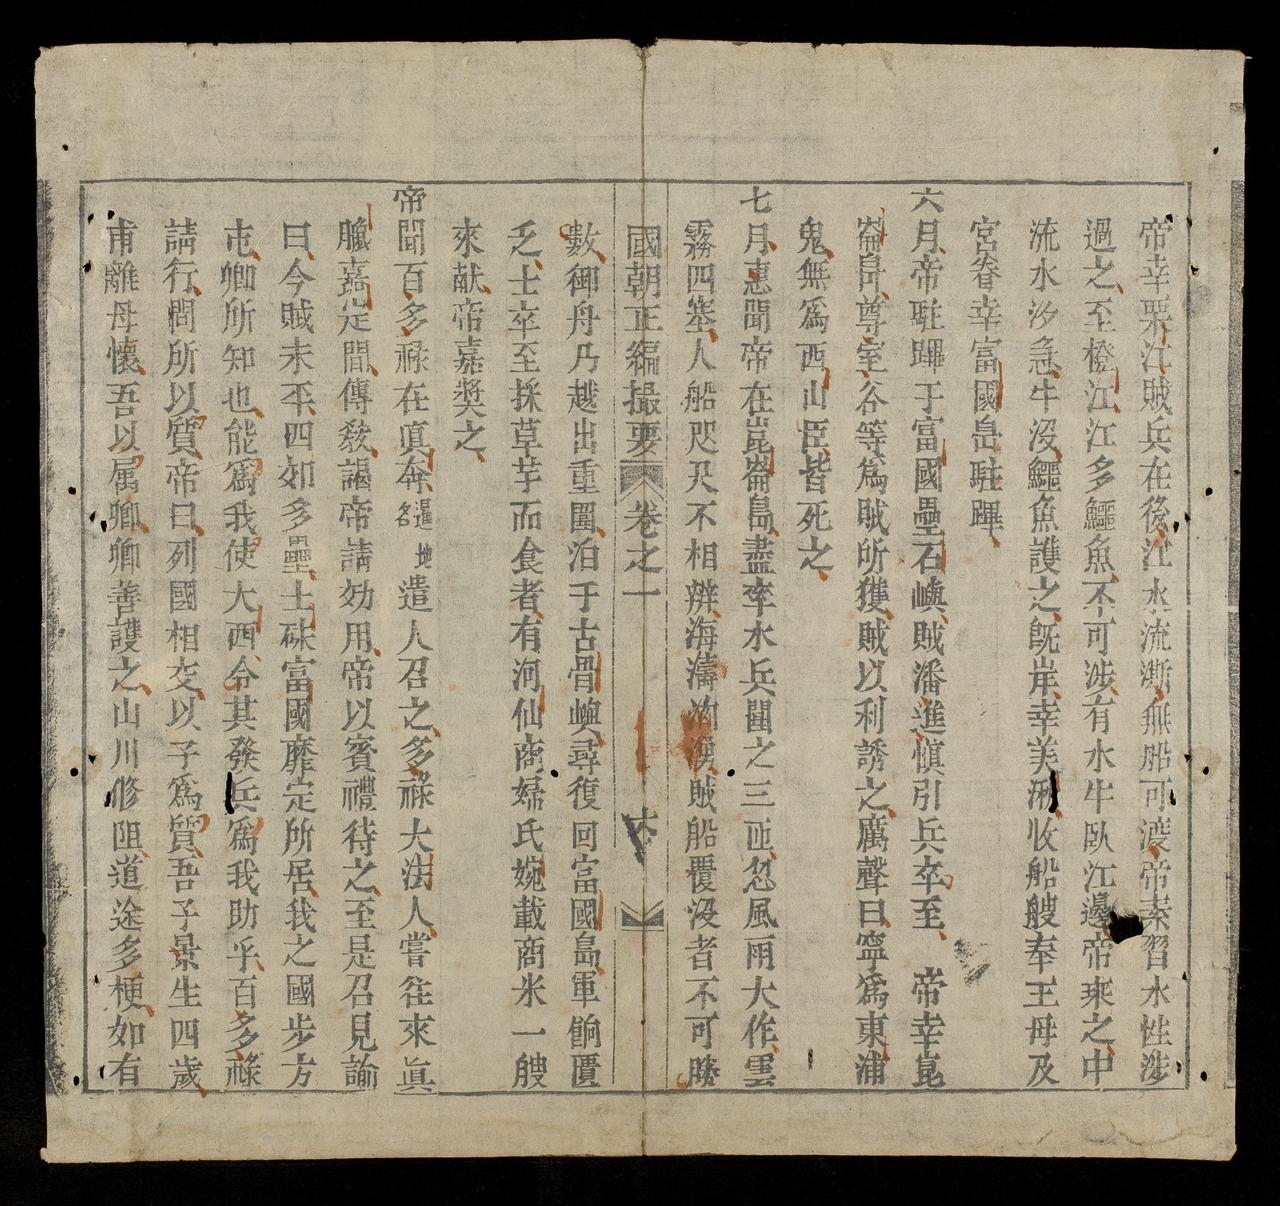 帝幸栗江賊兵在後江水流漸無船可渡帝素習水性涉
過之至橙江江多鱷魚不可涉有水牛臥江邊帝乘之中
流水汐急牛沒鱷魚護之旣岸幸美湫收船艘奉王母及
宮眷幸富國島駐蹕
六月帝駐蹕于富國壘石嶼賊潘進慎引兵卒至 帝幸崑
崙島尊室谷等爲賊所獲賊以利誘之厲聲曰寧爲東浦
鬼無爲西山臣皆死之
七月惠聞帝在崑崙島盡率水兵圍之三匝忽風雨大作雲
霧四塞人船咫尺不相辨海濤洶湧賊船覆沒者不可勝
國朝正編撮要 卷之一 六
數御舟乃越出重圍泊于古骨嶼尋復回富國島軍餉匱
乏士卒至採草芋而食者有河仙商婦氏婉載商米一艘
來献帝嘉奬之
帝聞百多祿在眞奔暹地名遣人召之多祿大法人嘗往來眞
臘嘉定間傳敎謁帝請効用帝以賓禮待之至是召見諭
曰今賊未平四如多壘土硃富國靡定所居我之國步方
屯卿所知也能爲我使大西令其發兵爲我助乎百多祿
請行問所以質帝曰列國相交以子爲質吾子景生四歲
甫離母懷吾以属卿卿善護之山川修阻道途多梗如有